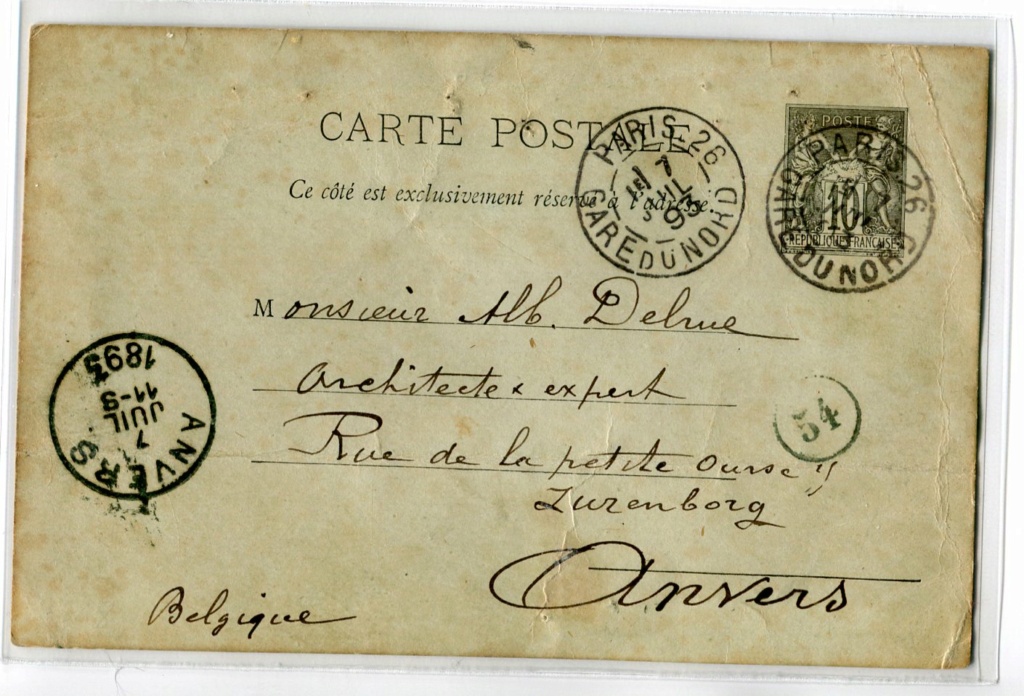 CARTE POSTALE
Ce côté est exclusivement réservé à l'adresse.
PARIS 26
7
JUIL
93
GARE DU NORD
POSTE
10
REPUBLIQUE FRANCAISE
PARIS 26
GARE DU NORD
Monsieur Alb. Delrue
Architecte expert
54
Rue de la petite ourse
Zurenborg
Anvers
Belgique
ANVERS
7
JUIL
11-9
1893